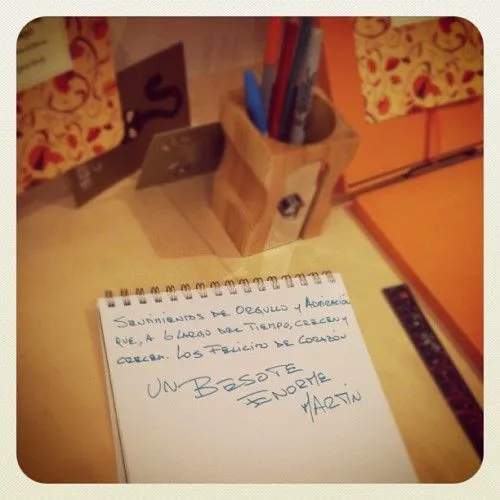 SENTIMIENTOS DE ORGULLO Y ADMIRACIÓN
QUE, A LO LARGO DEL TIEMPO, CRECEN Y
CRECEN. LOS FELICITO DE CORAZÓN
UN BESOTE
ENORME
MARTÍN